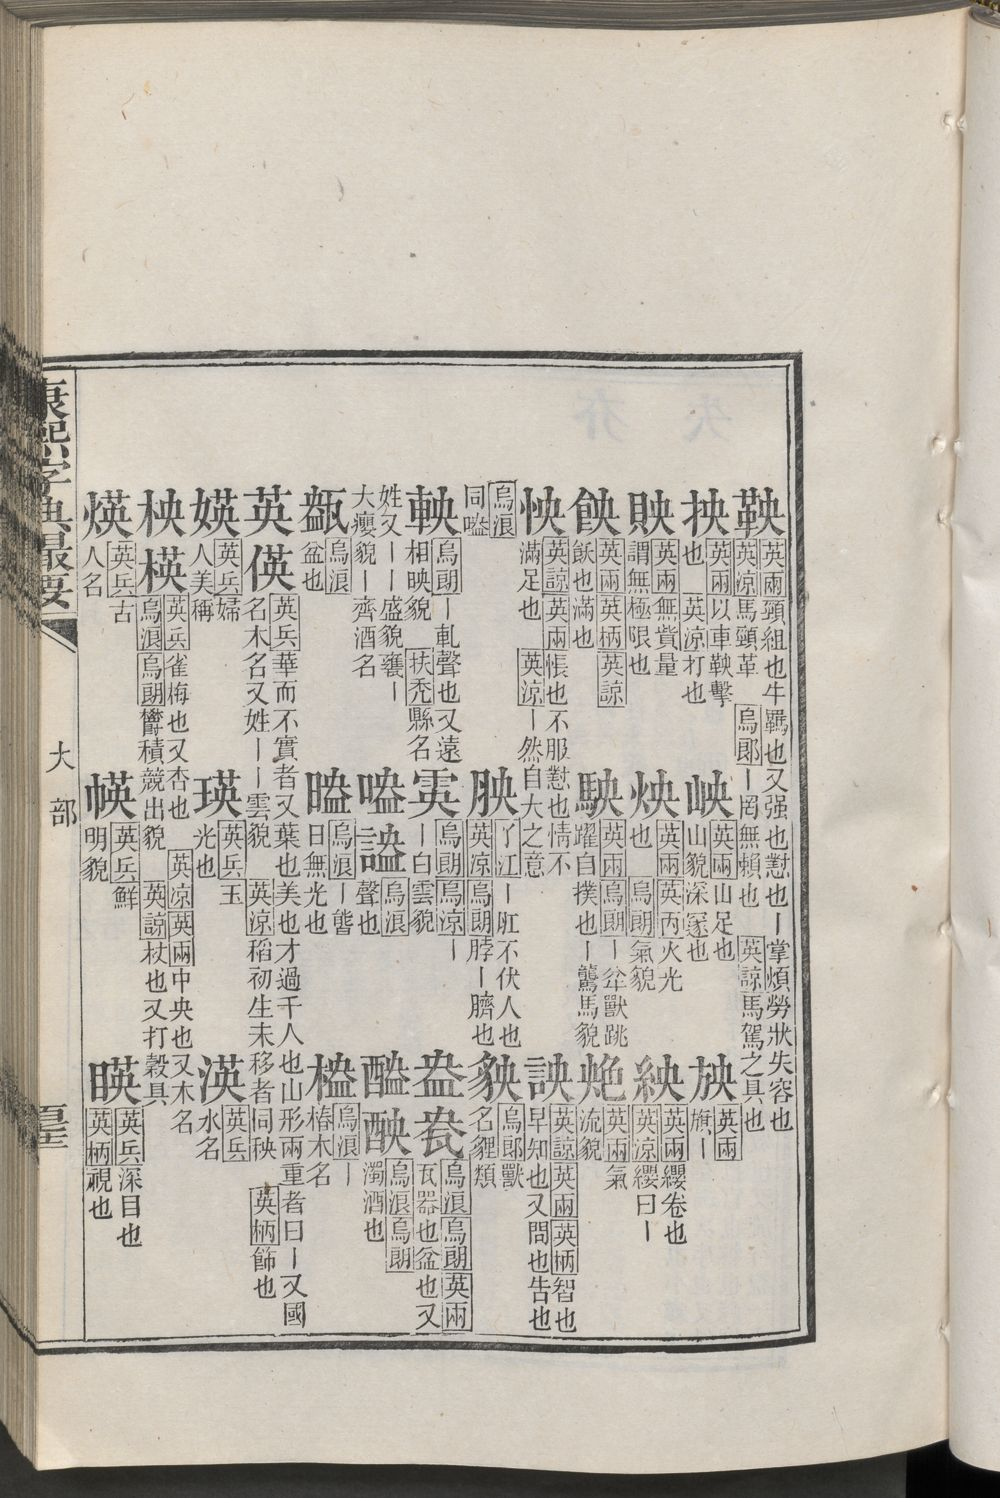 鞅 英兩頸組也牛羈也又强也懟也丨掌煩勞狀失容也 英凉馬頸革 烏郎丨罔無賴也 英諒馬駕之具也
抰 英兩以車鞅擊也 英凉打也
岟 英兩山足也山貌深冡也
胦 英兩旗丨
䝘 英兩無貲量謂無極限也
炴 英兩英丙火光也 烏朗氣貌
紻 英兩纓卷也 英凉纓曰丨
䬬 英兩英柄英諒飫也滿也
駚 英兩烏朗丨𡴭獸跳躍自撲也丨䮾馬貌
英兩氣流貌
怏 英諒英兩悵也不服懟也情不滿足也 英凉丨然自大之意
詇 英諒英兩英柄智也早知也又問也告也
烏浪同嗌
胦 了江丨肛不伏人也 英凉烏朗脖丨臍也
烏郎獸名貍類
軮 烏朗丨軋聲也又遠相映貌 扶禿縣名
雵 烏朗烏凉丨丨白雲貌
盎 㼜 烏浪烏朗英兩瓦器也盆也又
姓又丨丨盛貌甕丨大癭貌丨齊酒名
烏浪聲也
醠 䣐 烏浪烏朗濁酒也
烏浪盆也
烏浪丨𣋡日無光也
烏浪丨椿木名
英 偀 英兵華而不實者又葉也美也才過千人也山形兩重者曰丨又國名木名又姓丨丨雲貌 英凉稻初生未移者同秧 英柄飾也
媖 英兵婦人美稱
瑛 英兵玉光也
渶 英兵水名
柍 楧 英兵雀梅也又杏也 英凉英兩中央也又木名 烏浪烏朗欝積競出貌 英諒杖也又打穀具
煐 英兵古人名
㡕 英兵鮮明貌
暎 英兵深目也 英柄視也
康熙字典最要
大部